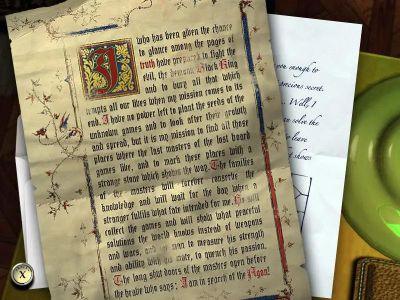 I who has been given the chance
to glance among the pages of
truth have prepared to fight the
evil, the demonic Black King
and to bury all that which
tempts all our lives when my mission comes to its
end. I have no power left to plant the seeds of the
unknown games and to look after their growth
and spread, but it is my mission to find all those
places where the last masters of the lost board
games live, and to mark these places with a
strange stone which shows the way. The families
of the masters will forever conserve the
knowledge and will wait for the day when a
stranger fulfils what fate intended for me. He will
collect the games and will show what peaceful
solutions the world knows instead of weapons
and wars, and man to measure his strength
and ability with his mate, to quench his passion.
The long shut doors of the masters open before
the brave who says: I am in search of the Agon!
you enough to
precious secret.
Well, I
solve the
to leave
shows
X